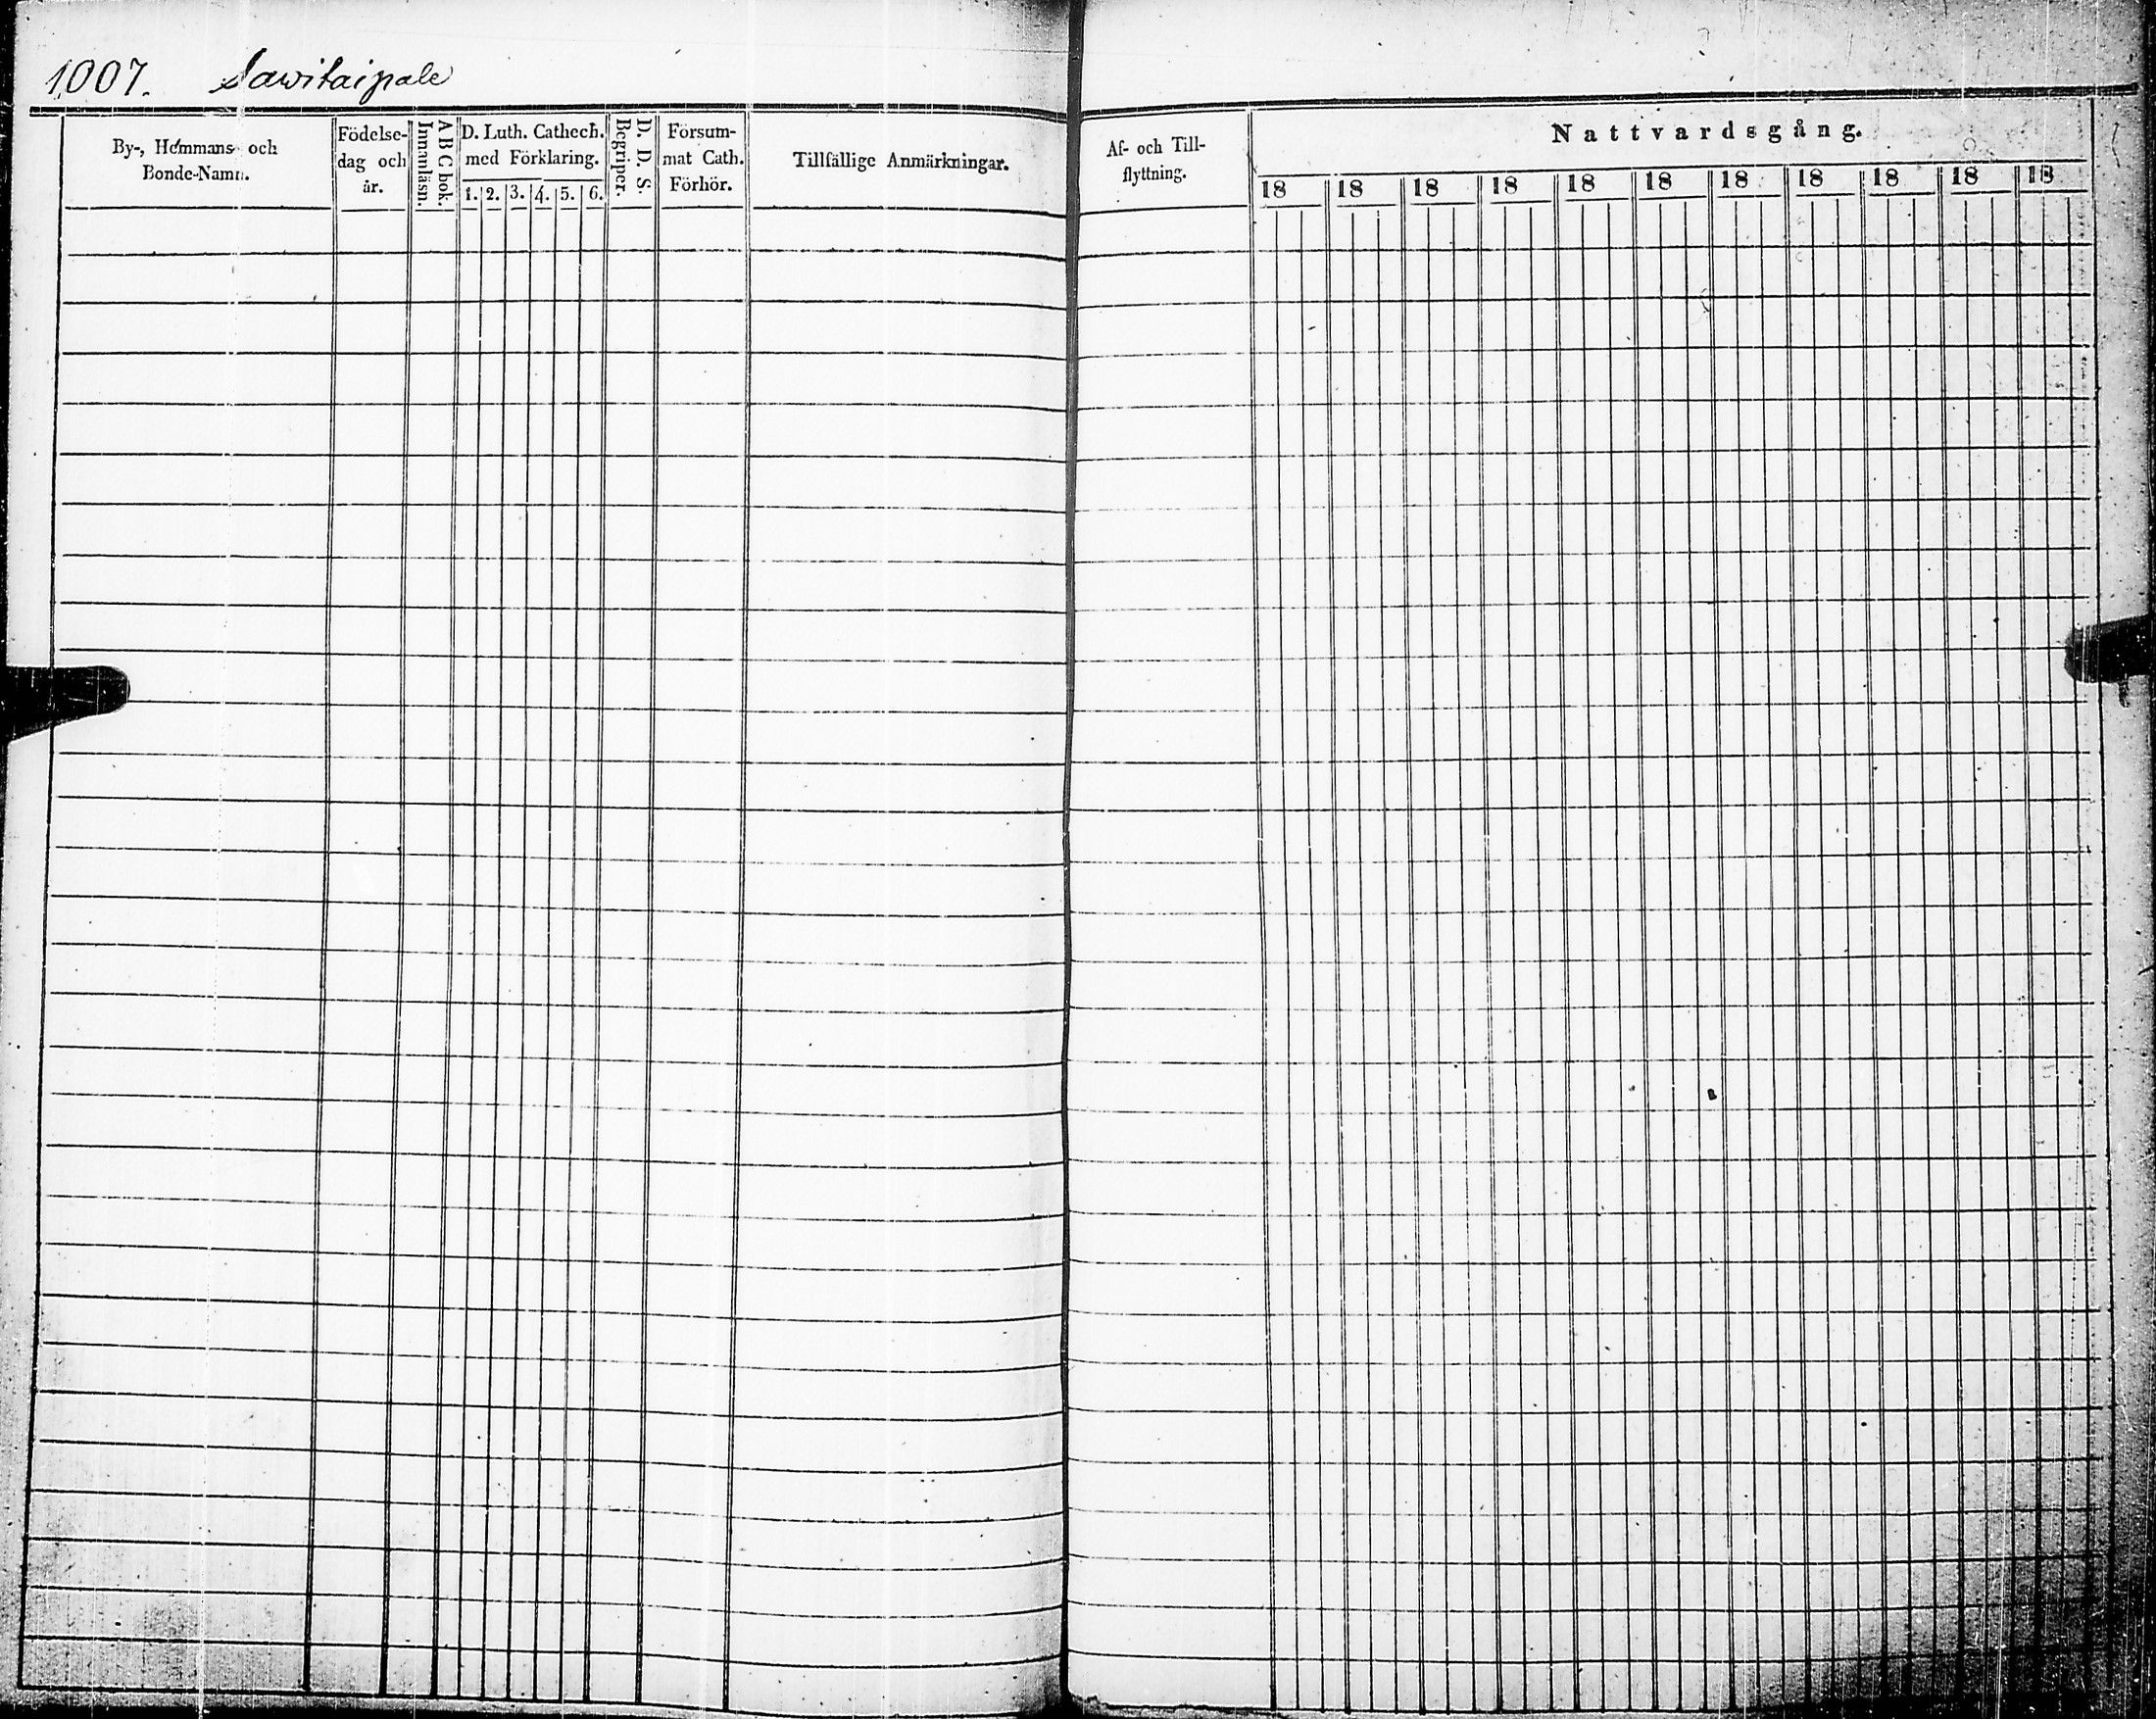 1007. Sawitaipale
By-, Hemmans- och
Bonde-Namn.
Födelse-
dag och
år.
A B C bok.
Innanläsn.
D. Luth. Cathech.
med Förklaring.
1. 2. 3. 4. 5. 6.
D. D. S.
Begriper.
Försum-
mat Cath.
Förhör.
Tillfällige Anmärkningar.
Af- och Till-
flyttning.
Nattvardsgång.
18 18 18 18 18 18 18 18 18 18 18